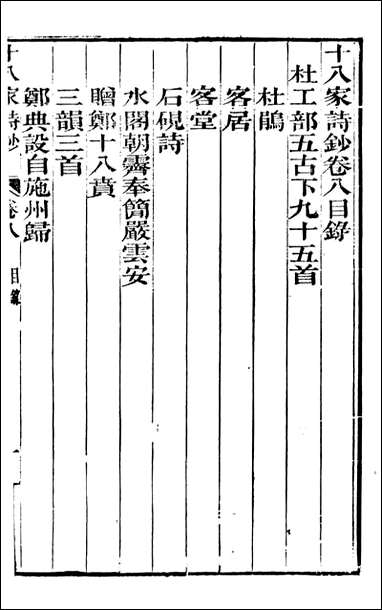 十八家詩鈔卷八目錄
杜工部五古下九十五首
杜鵑
客居
客堂
石硯詩
水閣朝霽奉簡嚴雲安
贈鄭十八賁
三韻三首
鄭典設自施州歸
十八家詩鈔 卷八 目錄 一